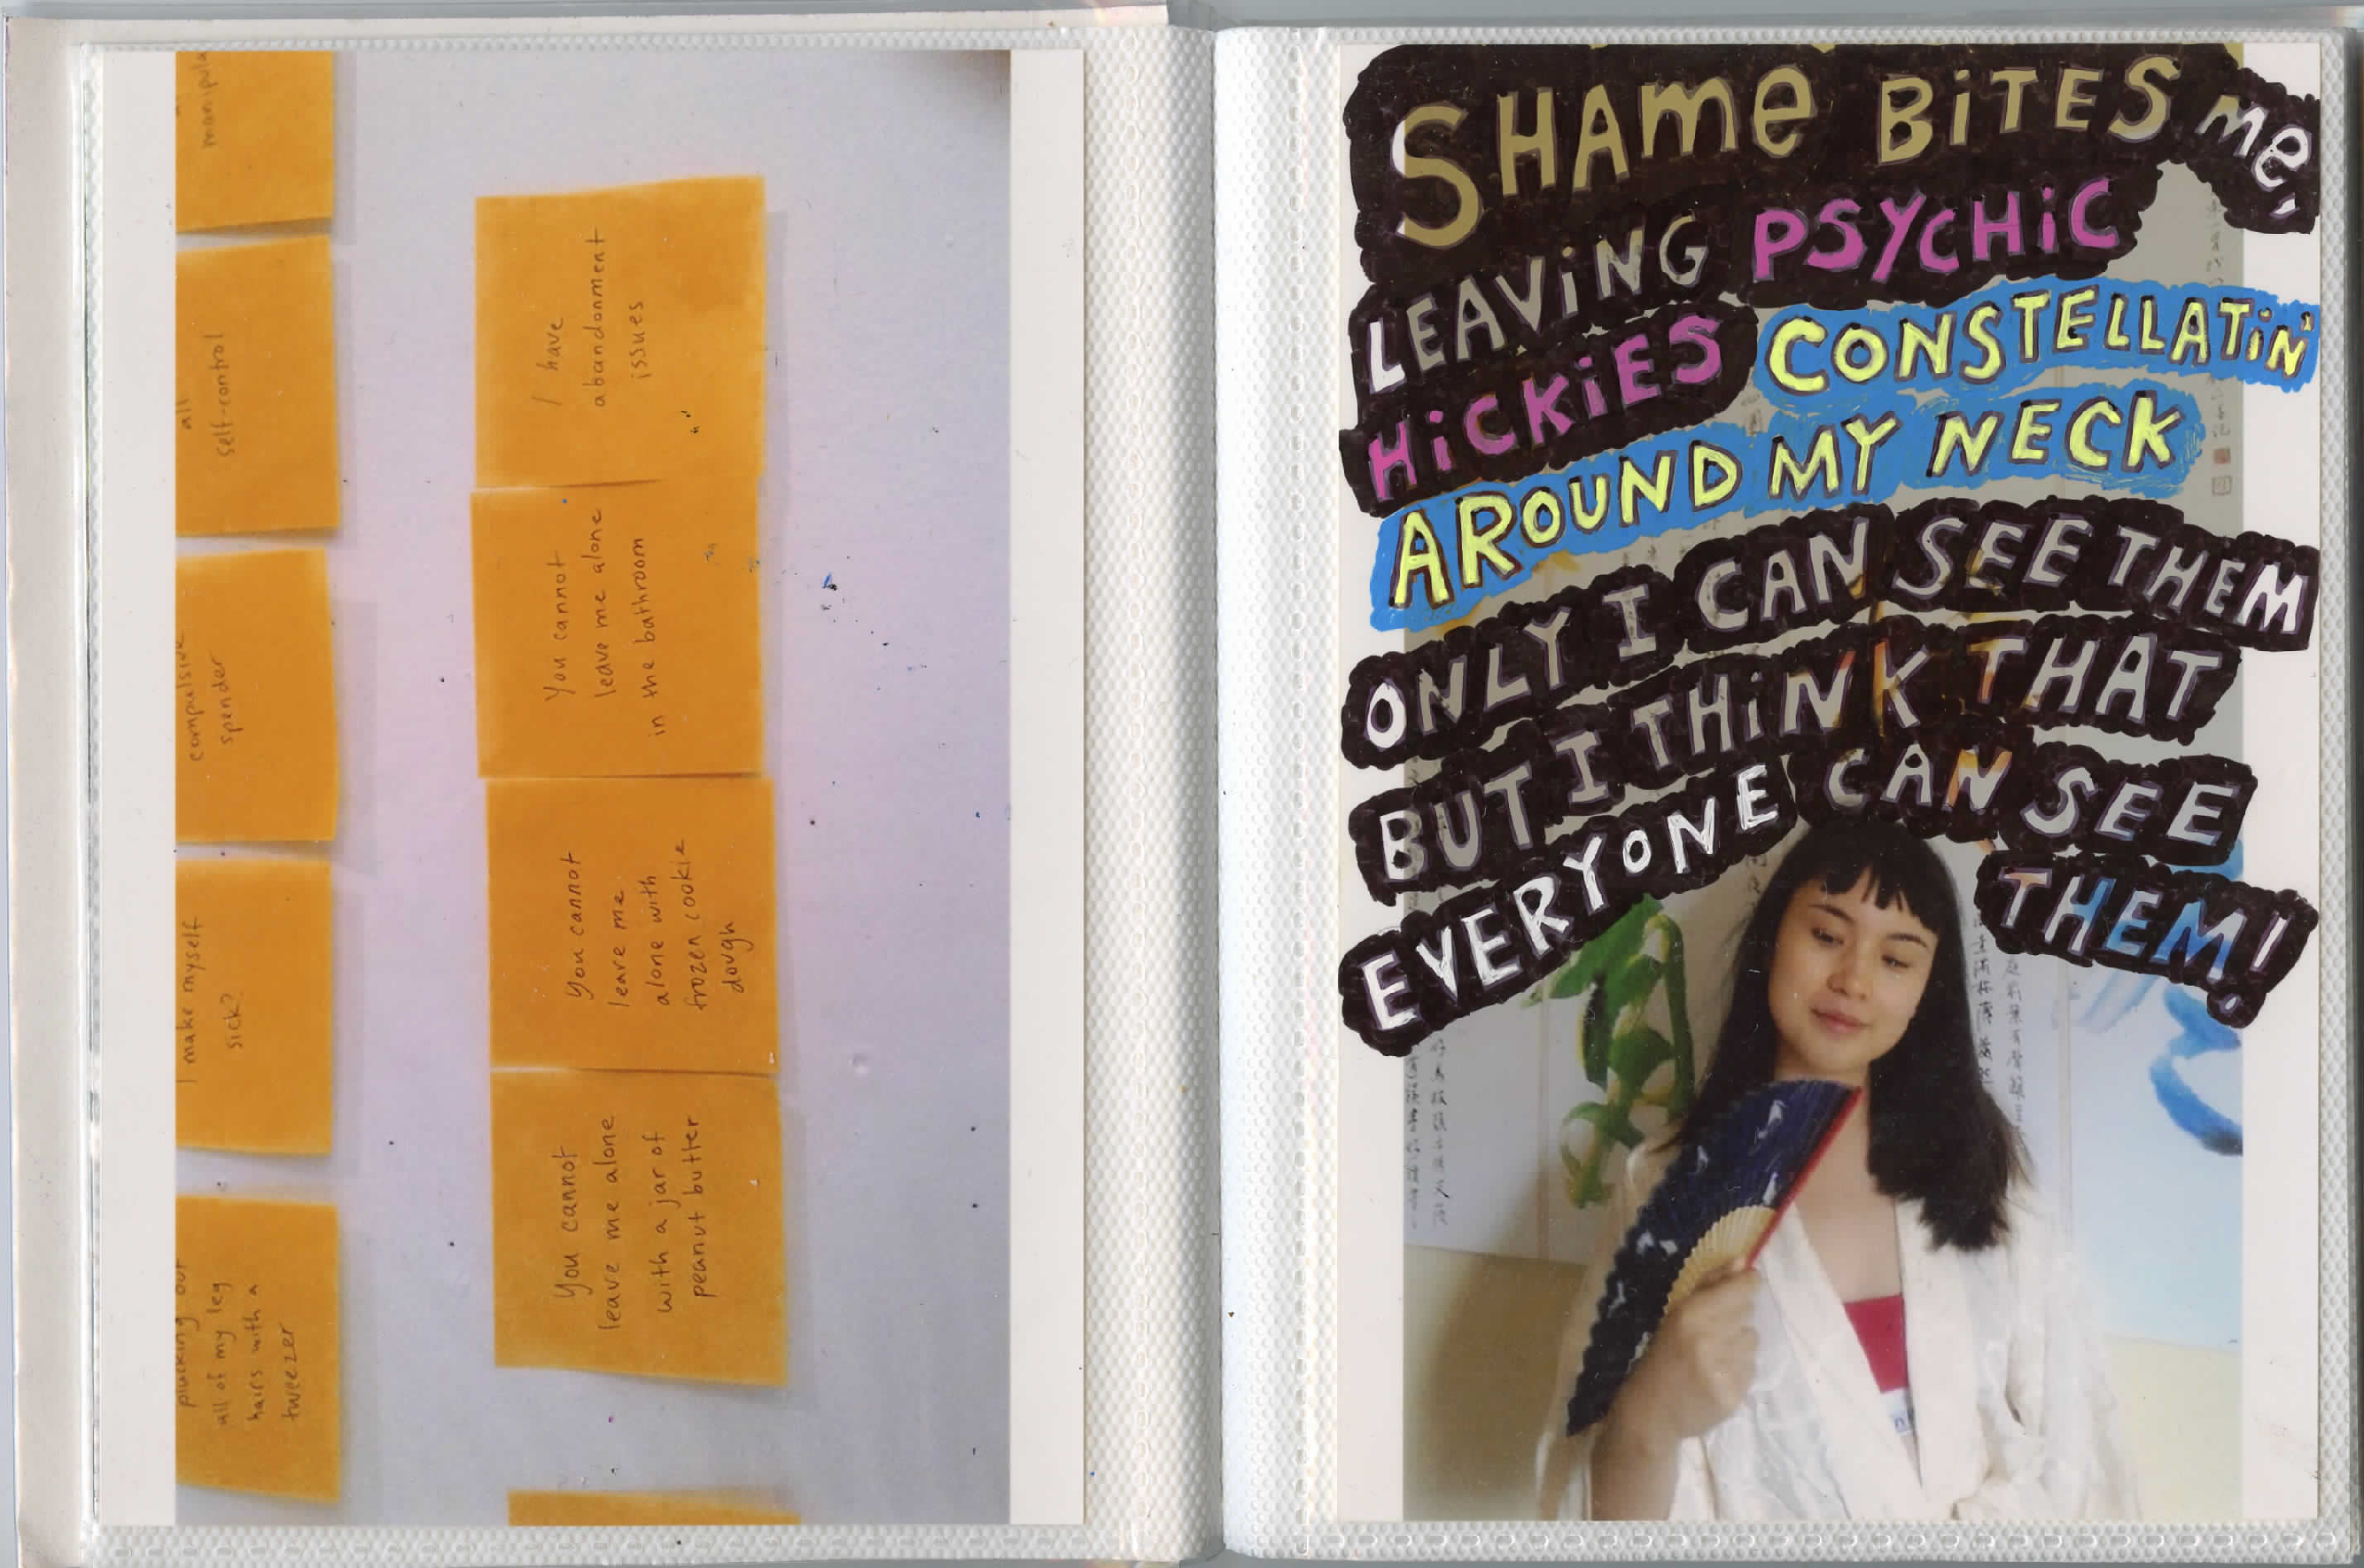 plucking out
all of my leg
hairs with a
tweezer
I make myself
sick?
compulsive
spender
all
self-control
You cannot
leave me alone
with a jar of
peanut butter
You cannot
leave me
alone with
frozen cookie
dough
You cannot
leave me alone
in the bathroom
I have
abandonment
issues
SHAme BiTES me,
LEAViNG PSYCHiC
HiCKiES CONSTELLATiN'
AROUND MY NECK
ONLY I CAN SEE THEM
BUT I THiNK THAT
EVERYONE CAN SEE
THEM!